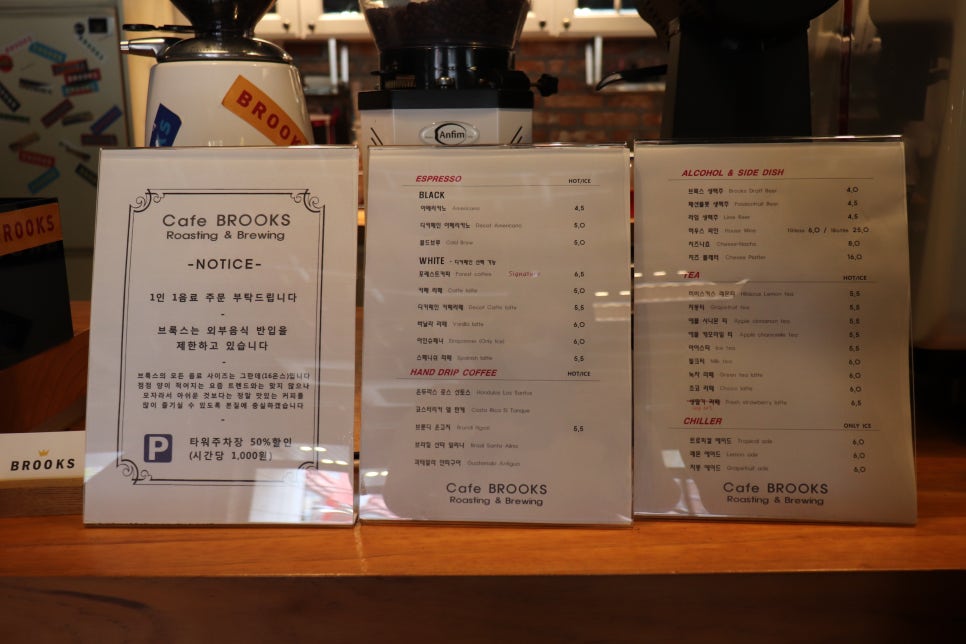 BROOKS
BROOKS
BROOKS
BROOKS
Anfim
Cafe BROOKS
Roasting & Brewing
-NOTICE-
1인 1음료 주문 부탁드립니다
-
브룩스는 외부음식 반입을
제한하고 있습니다
-
브룩스의 모든 음료 사이즈는 그란데(16온스)입니다
점점 양이 적어지는 요즘 트렌드와는 맞지 않으나
모자라서 아쉬운 것보다는 정말 맛있는 커피를
많이 즐기실 수 있도록 본질에 충실하겠습니다
-
P 타워주차장 50%할인
(시간당 1,000원)
ESPRESSO HOT/ICE
BLACK
아메리카노 Americano 4,5
디카페인 아메리카노 Decaf Americano 5,0
콜드브루 Cold Brew 5,0
WHITE - 디카페인 선택 가능
포레스트커피 Forest coffee Signature 6,5
카페 라떼 Caffe latte 5,0
디카페인 카페라떼 Decaf Caffe latte 5,5
바닐라 라떼 Vanilla latte 6,0
아인슈페너 Einspanner (Only Ice) 6,0
스페니쉬 라떼 Spanish latte 5,5
HAND DRIP COFFEE HOT/ICE
온두라스 로스 산토스 Honduras Los Santos
코스타리카 엘 탄케 Costa Rica El Tanque
브룬디 은고지 Brundi Ngozi 5,5
브라질 산타 알리나 Brazil Santa Alina
과테말라 안티구아 Guatemala Antigua
Cafe BROOKS
Roasting & Brewing
ALCOHOL & SIDE DISH
브룩스 생맥주 Brooks Draft Beer 4,0
패션플룻 생맥주 Passionfruit Beer 4,5
라임 생맥주 Lime Beer 4,5
하우스 와인 House Wine 1Glass 6,0 / 1Bottle 25,0
치즈나쵸 Cheese-Nacho 8,0
치즈 플래터 Cheese Platter 16,0
TEA HOT/ICE
히비스커스 레몬티 Hibiscus Lemon tea 5,5
자몽티 Grapefruit tea 5,5
애플 시나몬 티 Apple cinnamon tea 5,5
애플 캐모마일 티 Apple chamomile tea 5,5
아이스티 Ice tea 5,5
밀크티 Milk tea 6,0
녹차 라떼 Green tea latte 6,0
초코 라떼 Choco latte 6,0
생딸기 라떼 Fresh strawberry latte 6,5
CHILLER ONLY ICE
트로피컬 에이드 Tropical ade 6,0
레몬 에이드 Lemon ade 6,0
자몽 에이드 Grapefruit ade 6,0
Cafe BROOKS
Roasting & Brewing